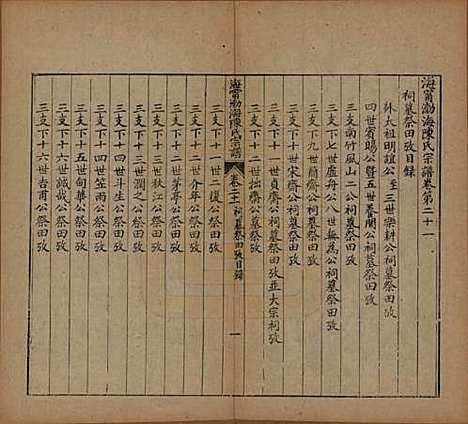 海甯渤海陳氏宗譜卷第二十一
祠墓祭田攷目錄
始太祖明誼公至三世樂耕公祠墓祭田攷
四世賓賜公曁五世養閒公祠墓祭田攷
三支南竹風山二公祠墓祭田攷
三支下七世虛舟公八世無為公祠墓祭田攷
三支下九世簡齋公祠墓祭田攷
三支下十世宋齋公祠墓祭田攷
三支下十一世貞齋公祠墓祭田攷並大宗祠攷
三支下十二世拙齋公祭田攷
三支下十一世二復公祭田攷
海甯渤海陳氏宗譜 卷二十一 祠墓祭田攷目錄 一
三支下十二世介年公祭田攷
三支下十二世茅亭公祭田攷
三支下十三世秋江公祭田攷
三支下十三世澗之公祭田攷
三支下十四世斗生公祭田攷
三支下十四世笠雨公祭田攷
三支下十五世旬華公祭田攷
三支下十六世誠哉公祭田攷
三支下十六世吉甫公祭田攷